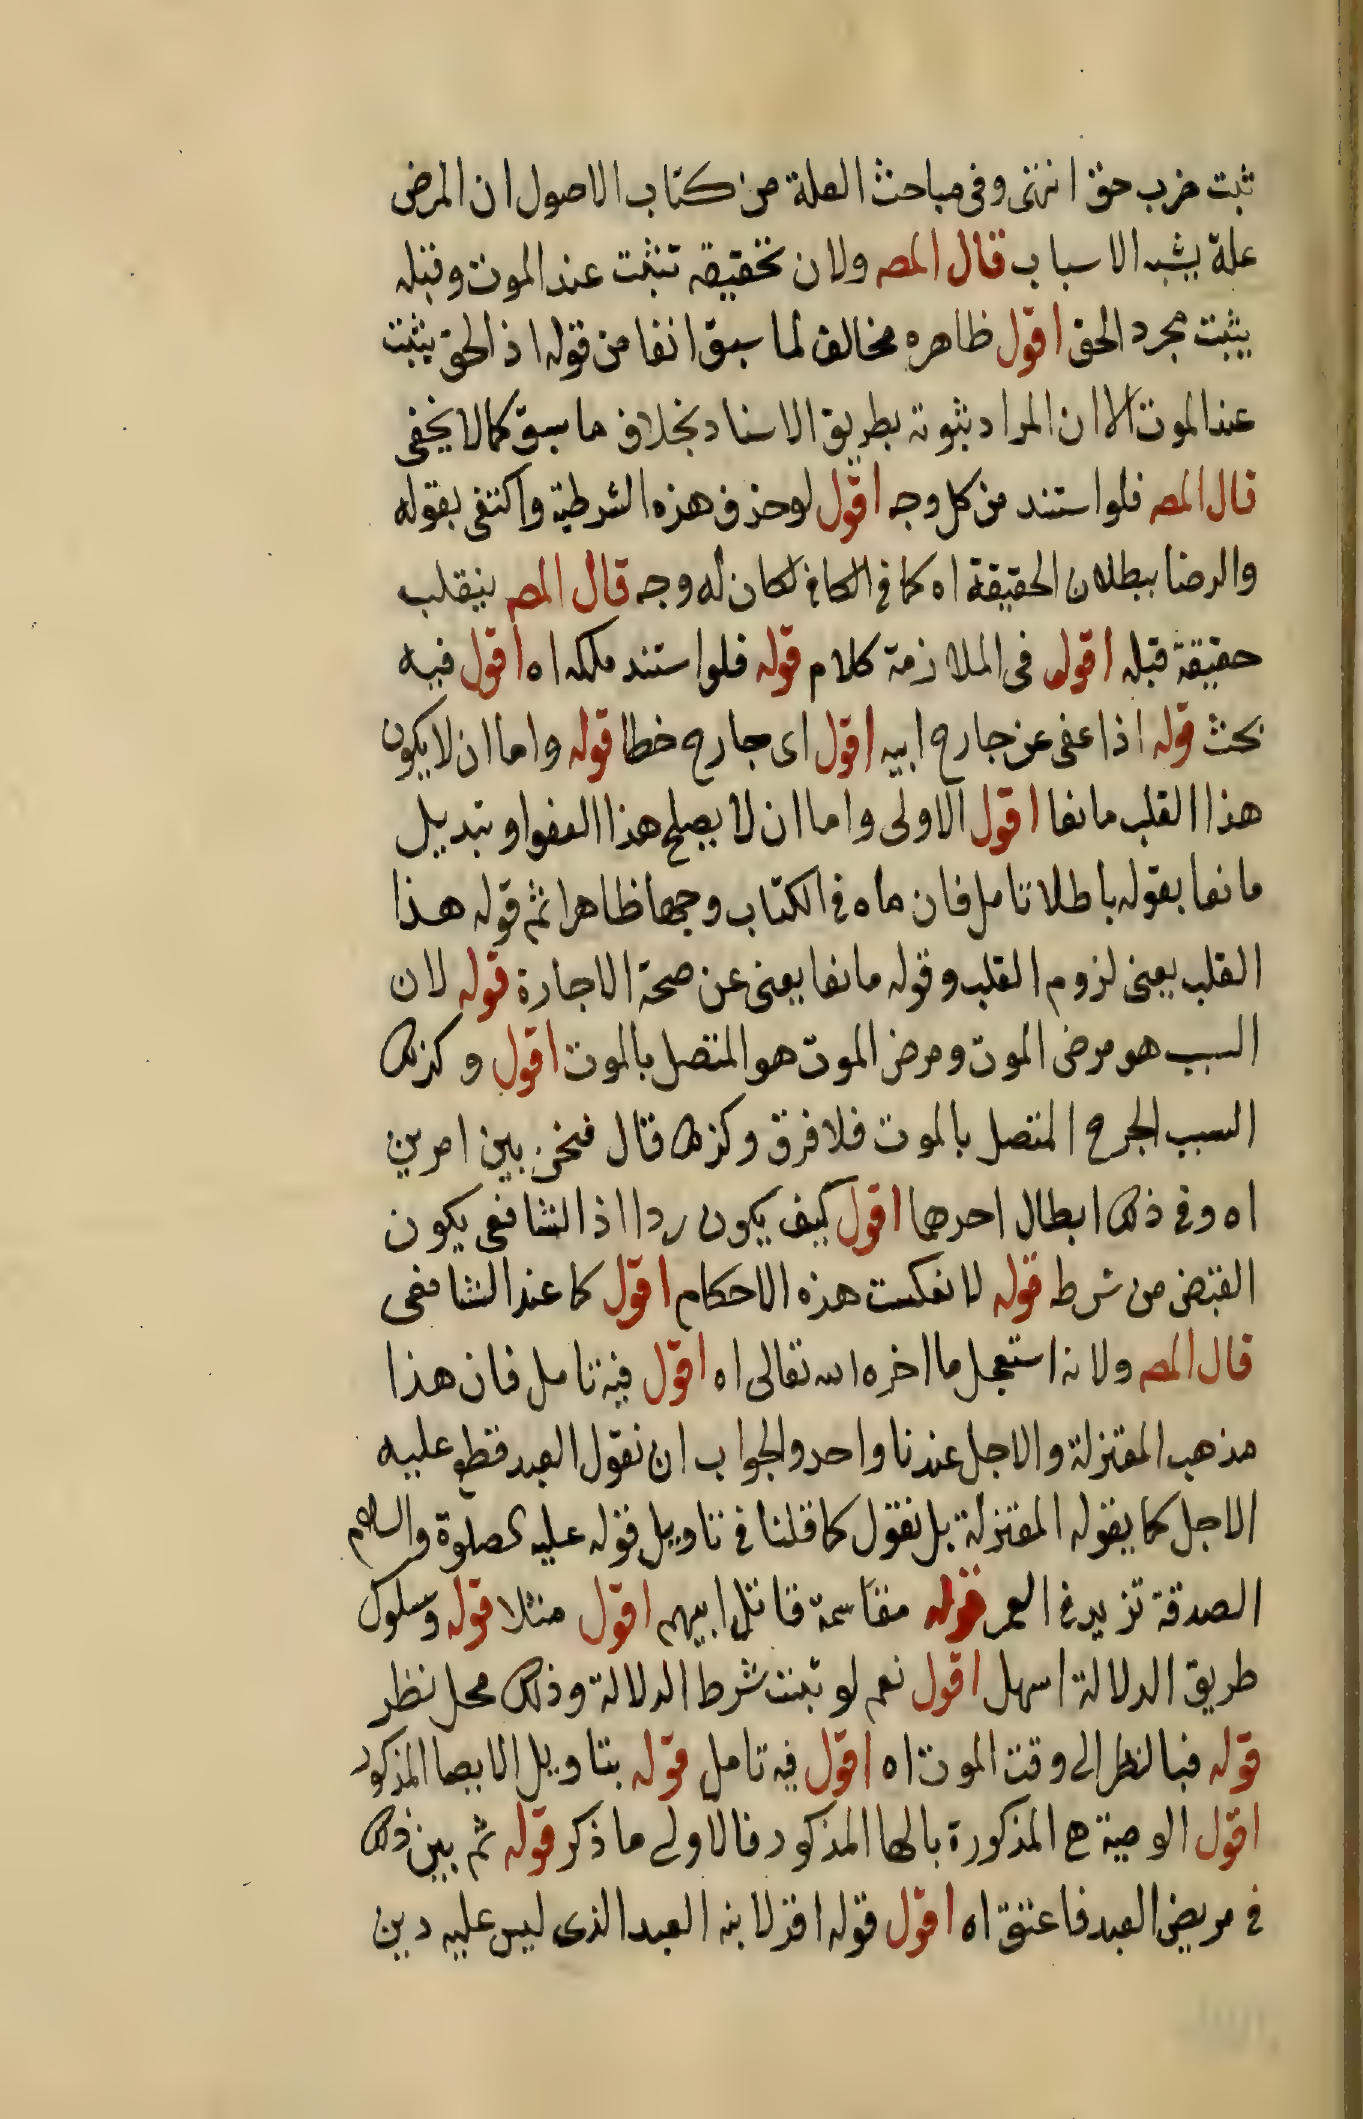 ثبت ضرب حق انتهى وفى مباحث العلة من كتاب الاصول ان المرض
علة يشبه الاسباب قال المصه ولان تحقيقه تثبت عند الموت وقبله
يثبت مجرد الحق اقول ظاهره مخالف لما سبق انفا من قوله اذ الحق يثبت
عند الموت الا ان المراد بثبوته بطريق الاسناد بخلاف ما سبق كما لا يخفى
قال المصه فلو استند من كل وجه اقول لو حذف هذه الشرطية واكتفى بقوله
والرضا ببطلان الحقيقة اه كما فى الكافى لكان له وجه قال المصه ينقلب
حقيقة قبله اقول فى الملازمة كلام قوله فلو استند ملكه اه اقول فيه
بحث قوله اذا عفى عن جارح ابيه اقول اى جارح خطا قوله واما ان لا يكون
هذا القلب مانعا اقول الاولى واما ان لا يصلح هذا العفو او تبديل
مانعا بقوله باطلا تامل فان ماه فى الكتاب وجها ظاهرا ثم قوله هذا
القلب يعنى لزوم القلب وقوله مانعا يعنى عن صحة الاجازة قوله لان
السبب هو مرض الموت ومرض الموت هو المتصل بالموت اقول وكذلك
السبب الجرح المتصل بالموت فلا فرق وكذلك قال فنحن بين امرين
اه وفى ذلك ابطال احدهما اقول كيف يكون ردا اذ الشافعى يكون
القبض من شرط قوله لانعكست هذه الاحكام اقول كما عند الشافعى
قال المصه ولانه استعجل ما اخره الله تعالى اه اقول فيه تامل فان هذا
مذهب المعتزلة والاجل عندنا واحد والجواب ان نقول العبد قطع عليه
الاجل كما يقوله المعتزلة بل نقول كما قلنا فى تاويل قوله عليه الصلوة والسلام
الصدقة تزيد فى العمر قوله مقاسمة قاتل ابيهم اقول مثلا قوله وسلوك
طريق الدلالة اسهل اقول نعم لو ثبت شرط الدلالة وذلك محل نظر
قوله فبالنظر الى وقت الموت اه اقول فيه تامل قوله بتاويل الايصا المذكور
اقول الوصية هى المذكورة بالها المذكور فالاولى ما ذكر قوله ثم بين ذلك
فى مريض العبد فاعتق اه اقول قوله اقر لابنه العبد الذى ليس عليه دين